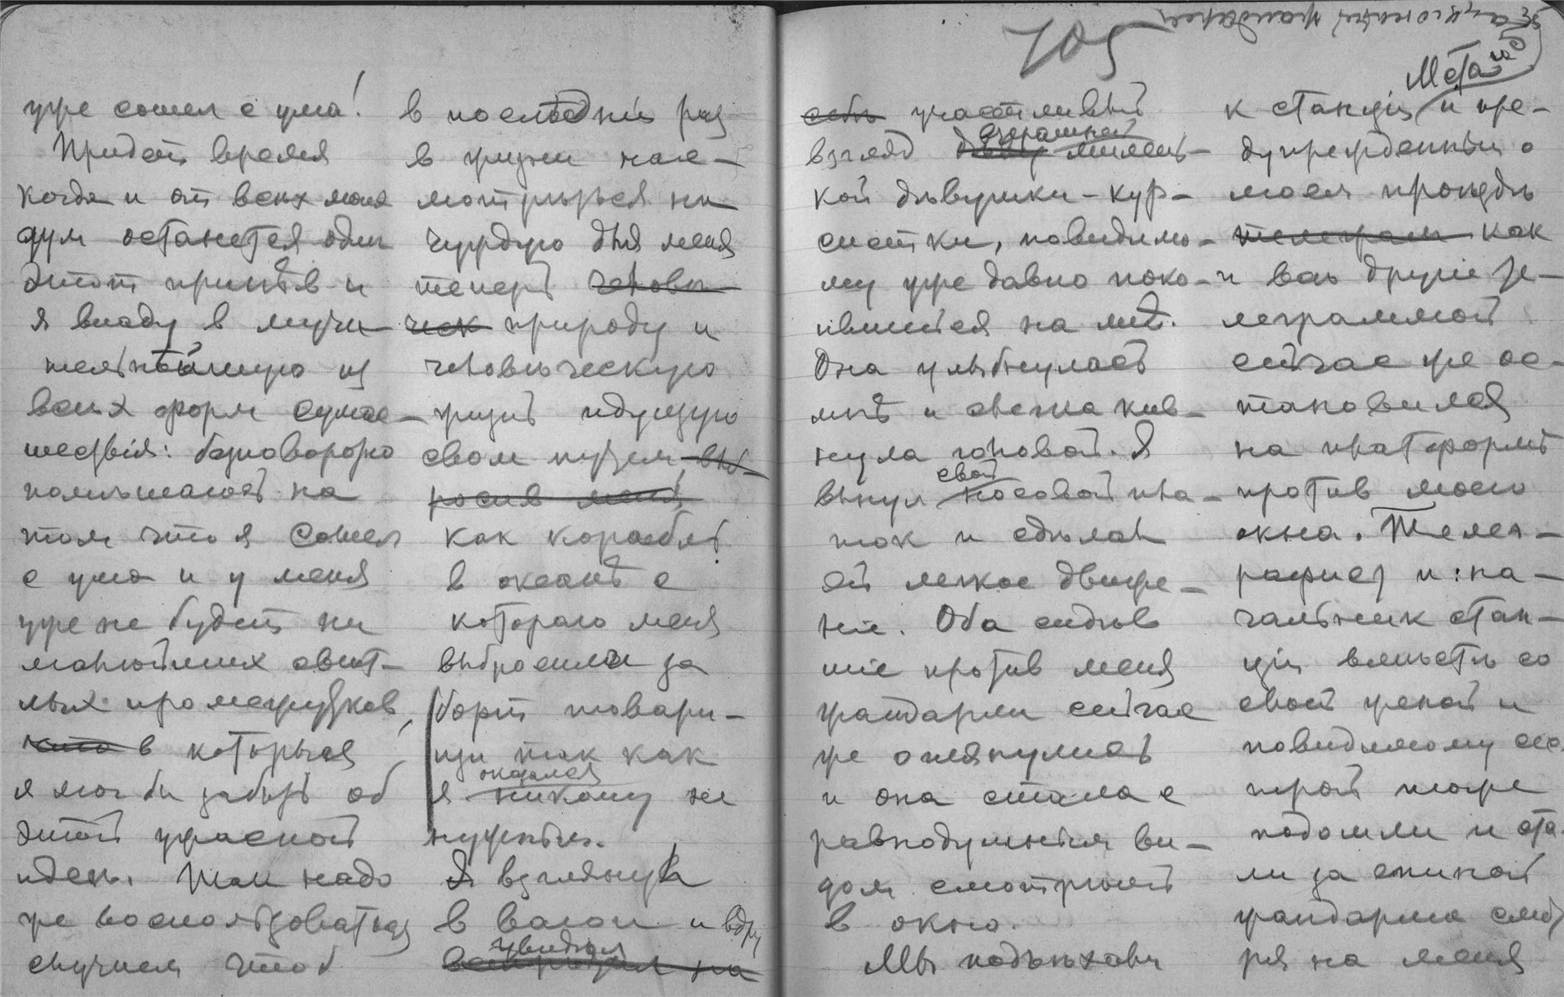 уже сошел с ума!
Придетъ время
когда и от всех моих
дум останется один
этот припѣв и
я впаду в мучи-
тельнѣйшую из
всех форм сумас-
шествія: безповоротно
помѣшаюсь на
том что я сошел
с ума и у меня
уже не будетъ ни
малѣйших свѣт-
лых промежутков,
в которых
я мог бы забыть об
этой ужасной
идеи. Так надо
же воспользоваться
случаем чтоб
в послѣдній раз
в жизни нас-
мотрѣться на
чуждую для меня
теперь человѣ-
ческ природу и
человѣческую
жизнь идущую
своим путем, выб-
росив меня,
как корабль
в океанѣ с
котораго меня
выбросили за
борт товари-
щи так как
я оказался
никому не
нужным.
Я взглянул
в вагон и вдруг
увидѣл
705
Мета
себѣ участливый
взгляд
кой дѣвушки-кур-
систки, повидимо-
му уже давно поко-
ившійся на мнѣ.
Она улыбнулась
мнѣ и слегка кив-
нула головой. Я
вынул свой носовой пла-
ток и сдѣлал
ей легкое движе-
ніе. Оба сидѣв
шіе против меня
жандармы сейчас
же оглянулись
и она стала с
равнодушным ви-
дом смотрѣть
в окно.
Мы подъѣхали
к станціи и пре-
дупрежденный о
моем проѣздѣ
телеграм как
и всѣ другіе те-
леграммой
сейчас же ос-
тановился
на платформѣ
против моего
окна. Телег-
рафист и на-
чальник стан-
ціи вмѣстѣ со
своей женой и
повидимому сес
трой тоже
подошли и ста-
ли за спиной
жандарма смот
ря на меня